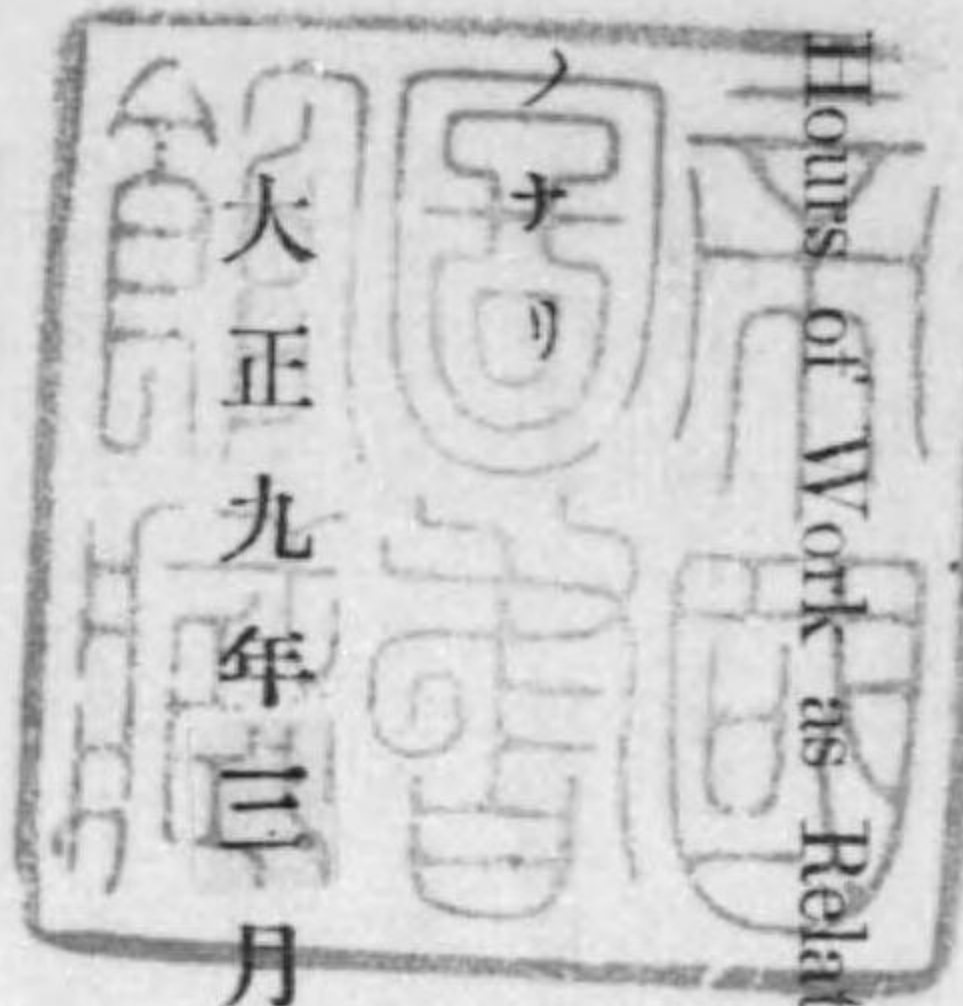 Hours of Work as Relat
ノナリ
大正九年三月
帝國
圖書
館藏